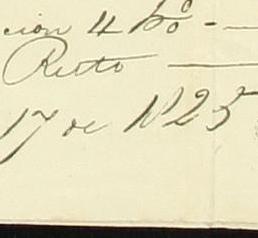 cion 4 %o -
Resto —
17 de 1825